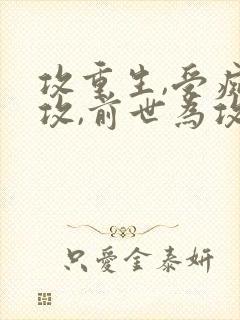 攻重生,受痴
攻,前世為攻
只愛金泰妍